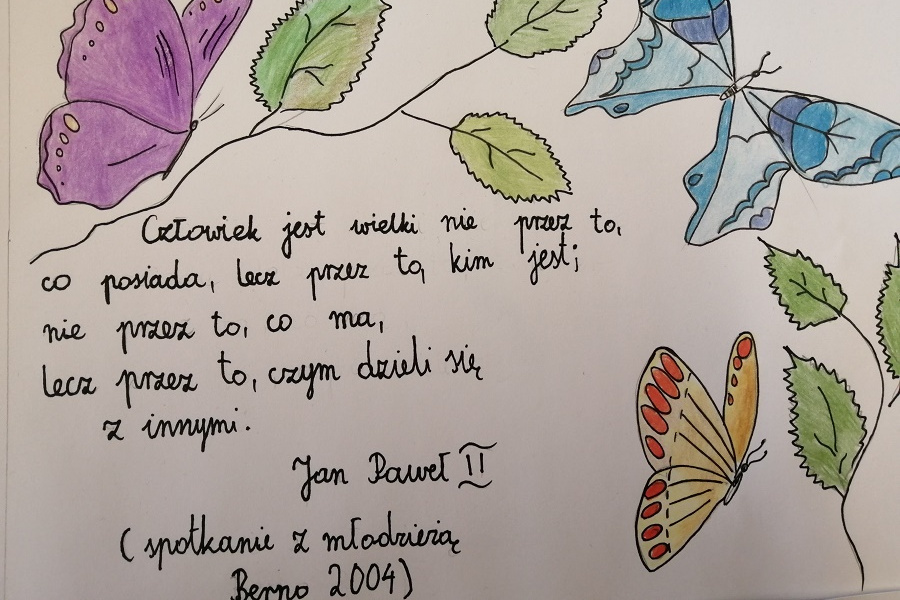 Człowiek jest wielki nie przez to,
co posiada, lecz przez to, kim jest;
nie przez to, co ma,
lecz przez to, czym dzieli się
z innymi.
Jan Paweł II
(spotkanie z młodzieżą
Berno 2004)